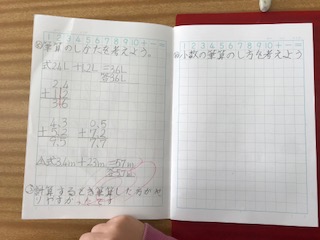 1 2 3 4 5 6 7 8 9 10 + − =
め筆算のしかたを考えよう。
式2.4L+1.2L=3.6L
答3.6L
2.4
+1.2
3.6
4.3
+5.2
9.5
0.5
+7.2
7.7
式3.4m+2.3m=5.7m
答5.7m
計算するとき筆算した方がわか
りやすかったです
1 2 3 4 5 6 7 8 9 10 + − =
め小数の筆算のし方を考えよう